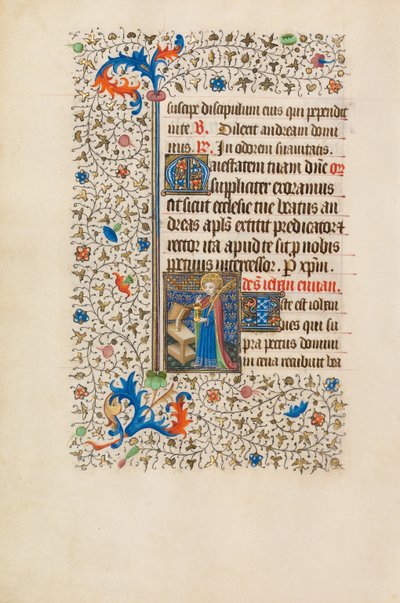 suscipe discipulum eius qui pependit
in te. V. Dilexit andream domi
nus. R. In odorem suavitatis.
Maiestatem tuam dñe or
suppliciter exoramus
ut sicut ecclesie tue beatus an
dreas apls extitit predicator et
rector ita apud te sit p nobis
petuus intercessor. P xpm.
des. iehan euuan.
Iste est iohan
nes qui su
pra pectus domini
in cena recubuit bea